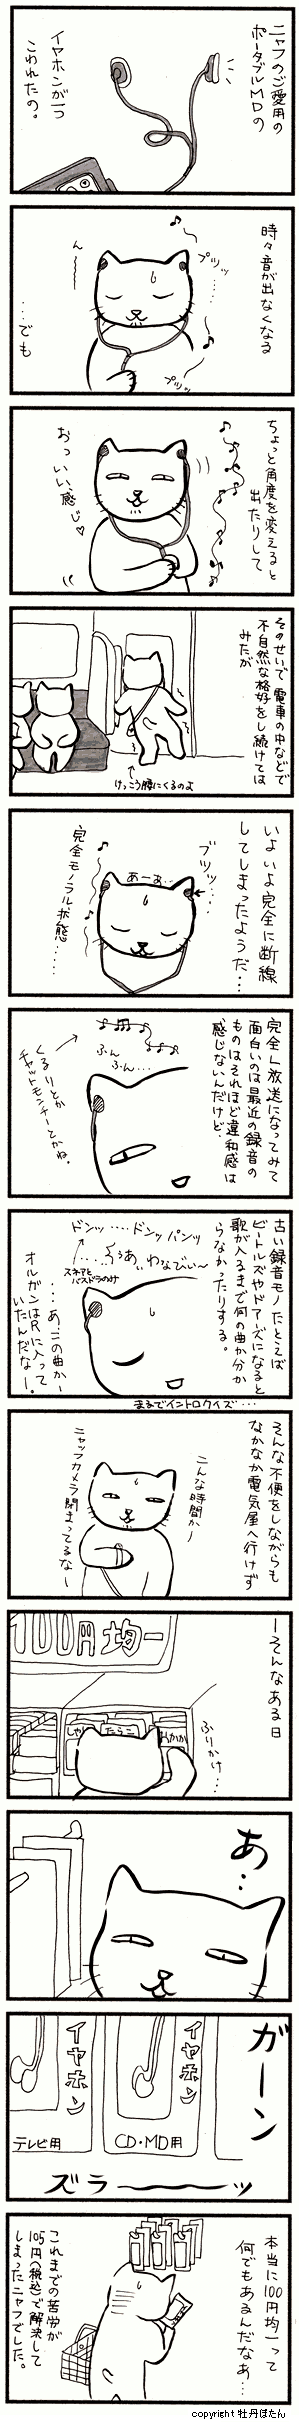 ニャフのご愛用の
ポータブルMDの
イヤホンが一つ
こわれたの。
時々音が出なくなる
プツッ…
ん〜
プツッ…
……でも
ちょっと角度を変えると
出たりして
おっいい感じ♡
そのせいで電車の中などで
不自然な格好をし続けては
みたが
けっこう腰にくるのよ
いよいよ完全に断線
してしまったようだ…
ブツッ…
あーあ…
完全モノラル状態……
完全L放送になってみて
面白いのは最近の録音の
ものはそれほど違和感は
感じないんだけど、
ふん
ふん…
くるりとか
チャットモンチーとかね。
古い録音モノたとえば
ビートルズやドアーズになると
歌が入るまで何の曲か分か
らなかったりする。
ドンッ……ドンッパンッ
スネアと
バスドラのみ
…うぁ、わなびぃ〜
…あ、この曲かー
オルガンはRに入って
いたんだなー。
まるでイントロクイズ…
そんな不便をしながらも
なかなか電気屋へ行けず
こんな時間かー
ニャップカメラ閉まってるなー
ーそんなある日
100円均一
しゃけ
たらこ
おかか
ふりかけ…
あ…
ガーン
イヤホン
テレビ用
イヤホン
CD・MD用
ズラーーッ
本当に100円均一って
何でもあるんだなあ…
これまでの苦労が
105円(税込)で解決して
しまったニャフでした。
copyright 牡丹ぼたん